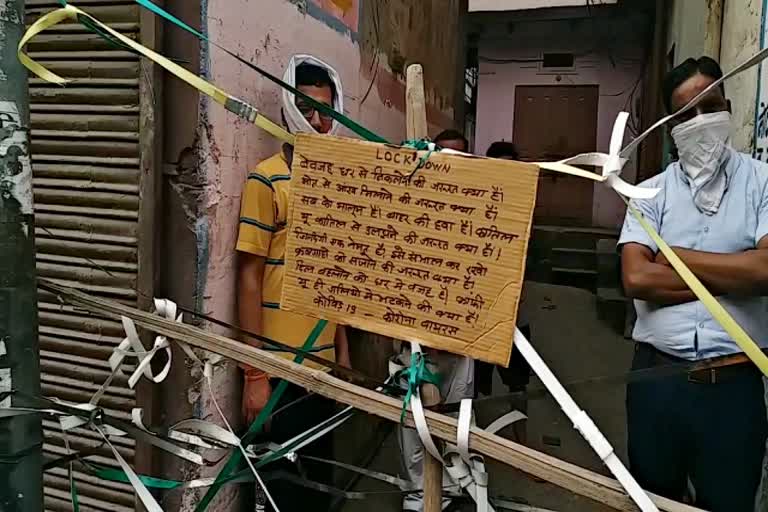 LOCK DOWN
बेवजह घर से निकलने की जरूरत क्या है।
मौत से आंख मिलाने की जरूरत क्या है।
सब को मालूम है। बाहर की हवा है। कातिल
यू कातिल से उलझने की जरूरत क्या है।
जिन्दिगी एक नेमत है, इसे संभाल कर रखो
को सजाने की जरूरत क्या है,
दिल बहलाने को घर मे वजह है, काफी
यू ही गलियो मे भटकने की क्या है।
कोविड 19 - कोरोना वायरस